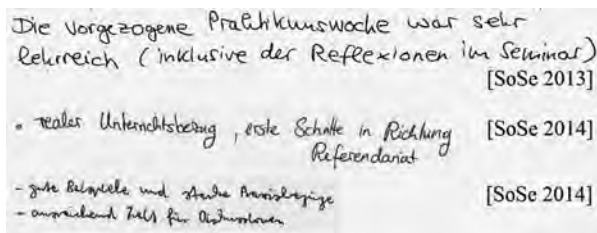 Die vorgezogene Praktikumswoche war sehr
lehrreich (inklusive der Reflexionen im Seminar)
[SoSe 2013]
• realer Unterrichtsbezug, erste Schritte in Richtung [SoSe 2014]
Referendariat
- gute Beispiele und starke Praxisbezüge [SoSe 2014]
- ausreichend Zeit für Diskussionen